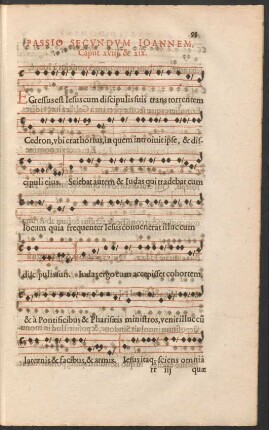 98
PASSIO SECVNDVM IOANNEM,
Caput xviij & xix.
EGressus est Iesus cum discipulis suis trans torrentem
Cedron, vbi erat hortus, in quem introiuit ipse, & dis-
cipuli eius. Sciebat autem & Iudas qui tradebat eum
locum quia frequenter Iesus conuenerat illuc cum
discipulis suis. Iudas ergo cum accepisset cohortem,
& à Pontificibus & Pharisæis ministros, venit illuc cū
laternis & facibus, & armis. Iesus itaq; sciens omnia
rr iij quæ